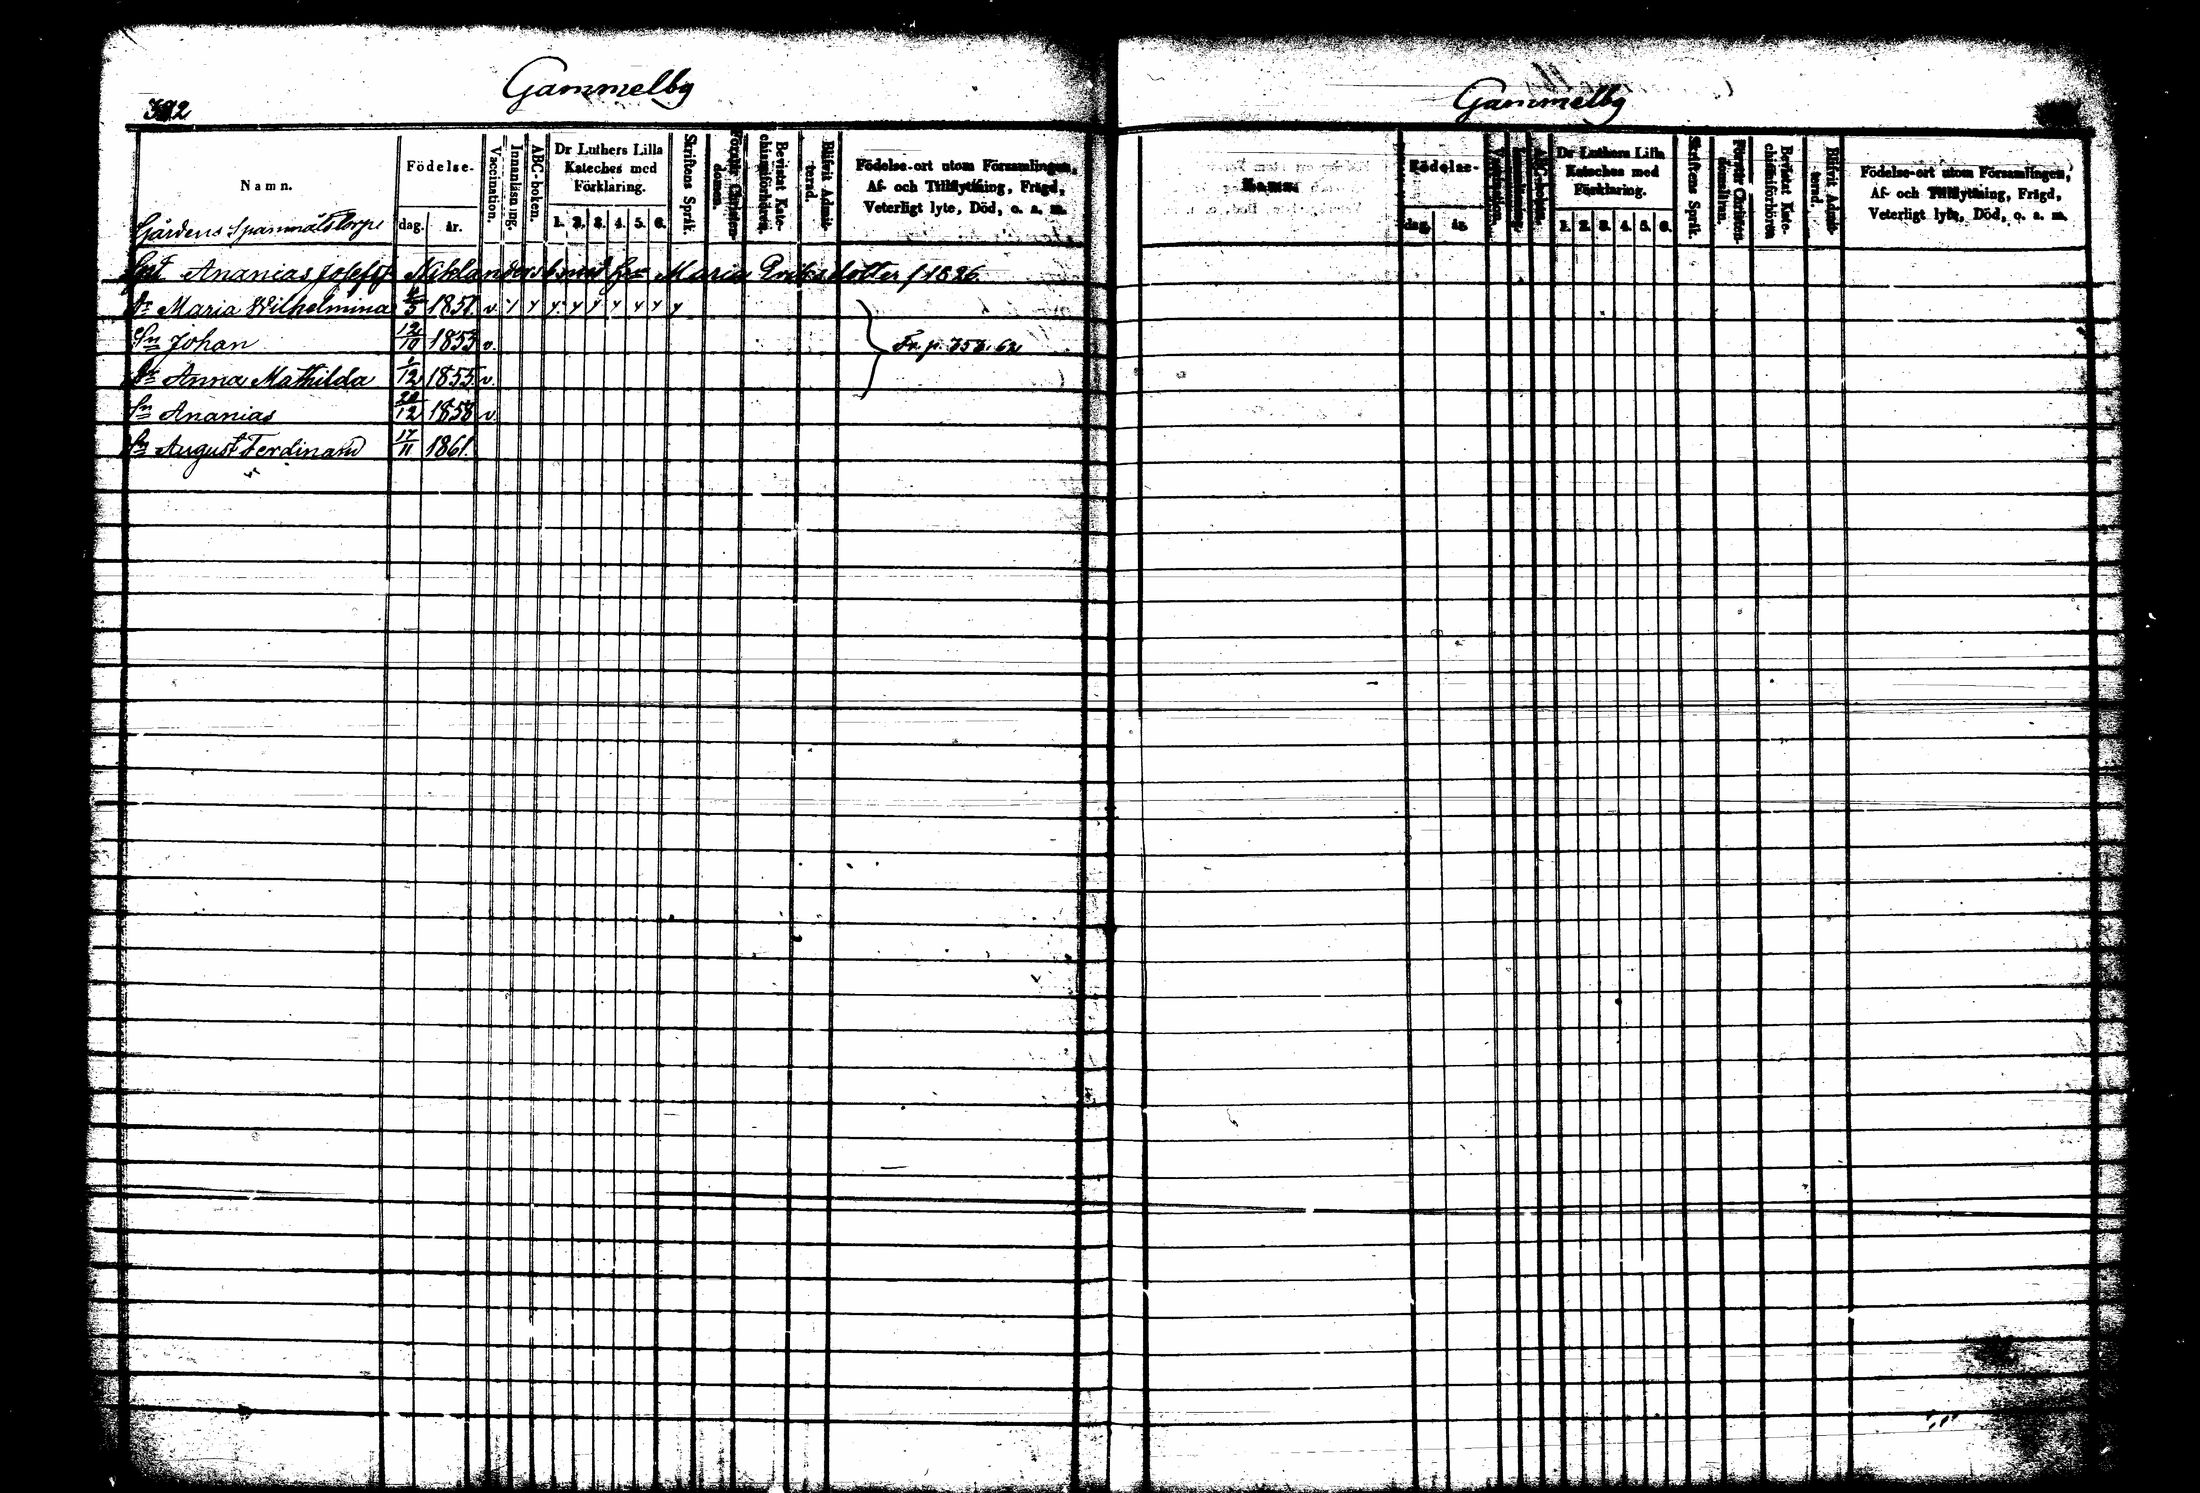 Gammelby
392
Namn.
Födelse-
dag.
år.
Vaccination.
Innanläsning.
ABC-boken.
Dr Luthers Lilla
Kateches med
Förklaring.
1. 2. 3. 4. 5. 6.
Skriftens Språk.
Förstår Christen-
domen.
Bevistat Kate-
chismiförhören.
Blifvit Admit-
terad.
Födelse-ort utom Församlingen,
Af- och Tillflyttning, Frägd,
Veterligt lyte, Död, o. a. m.
Gårdens Spanmålstorpe
Ananias Josefss. Maria Eriksdotter f 1826.
Dr Maria Wilhelmina 1851. v
Sn Johan 12/10 1853 v.
Dr Anna Mathilda 1855 v.
Fr. p.
Sn Ananias 1858 v.
Sn August Ferdinand 17/11 1861.
Gammelby
Namn.
Födelse-
dag.
år.
Vaccination.
ABC-boken.
Dr Luthers Lilla
Kateches med
Förklaring.
1. 2. 3. 4. 5. 6.
Skriftens Språk.
Förstår Christen-
domsläran.
Bevistat Kate-
chismiförhören
Blifvit Admit-
terad.
Födelse-ort utom Församlingen,
Af- och Tillflyttning, Frägd,
Veterligt lyte, Död, o. a. m.